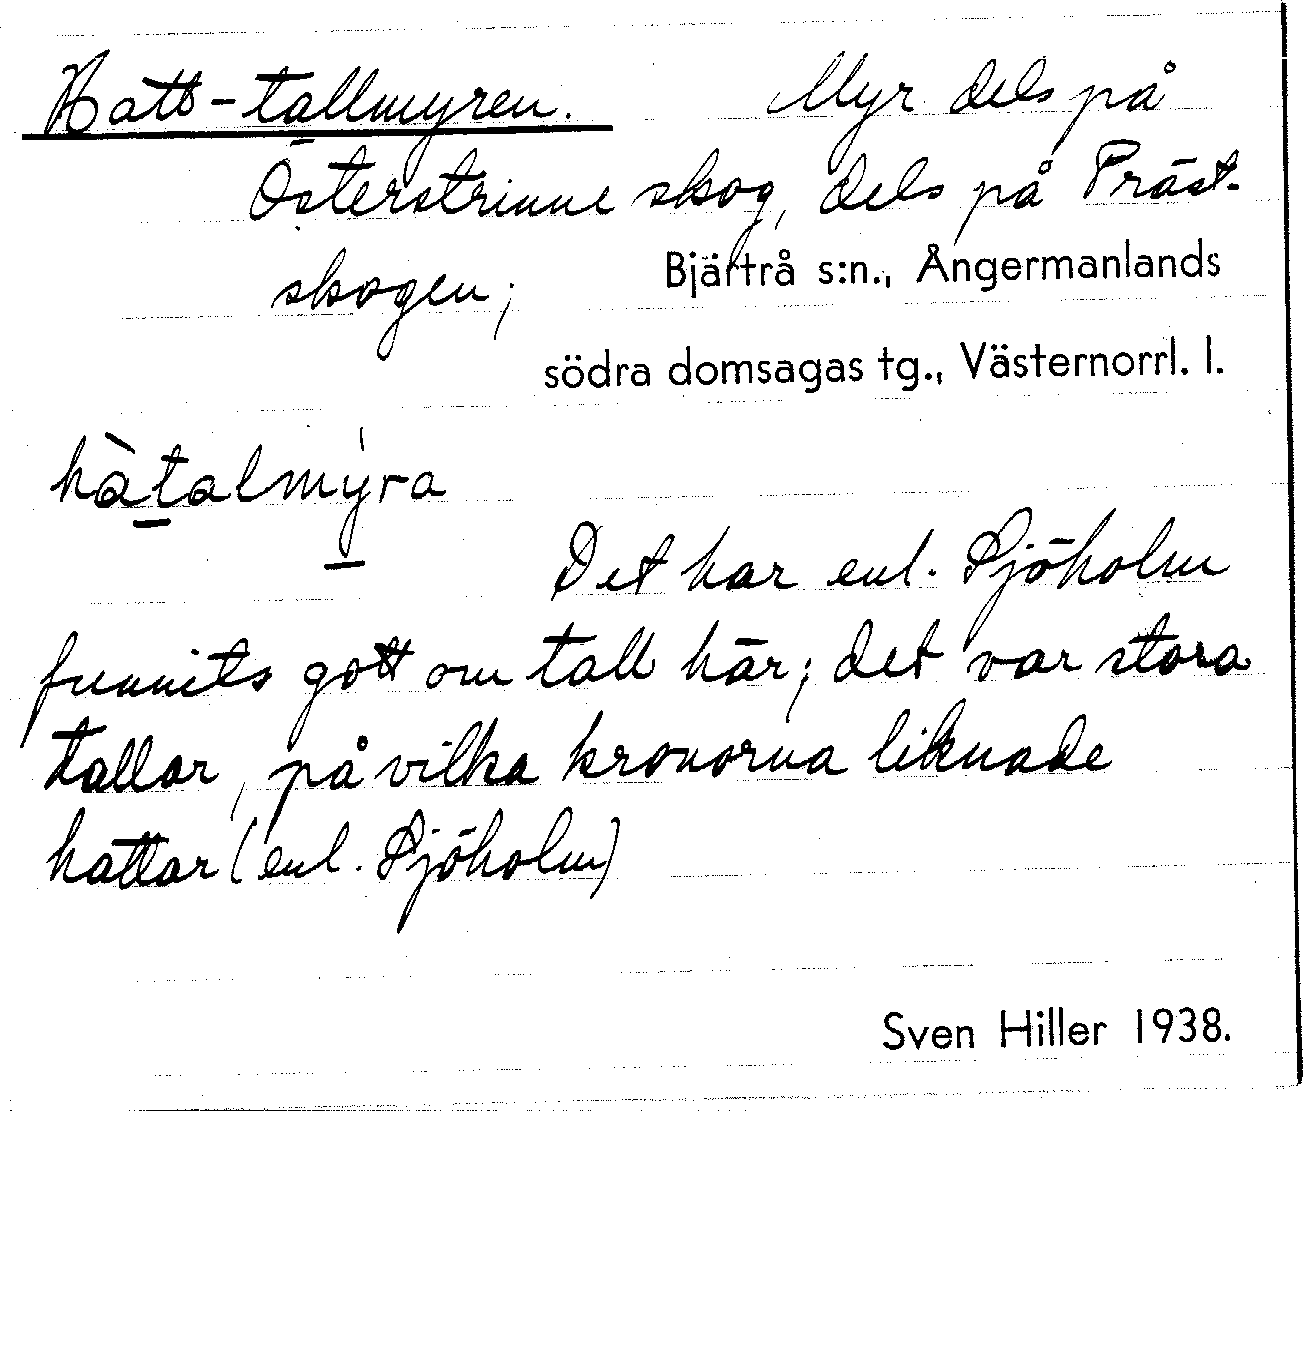 Hatt-tallmyren. Myr dels på
Österstrinne skog, dels på Präst-
skogen; Bjärtrå s:n., Ångermanlands
södra domsagas tg., Västernorrl. l.
hàtalmýra
Det har enl. Sjöholm
funnits gott om tall här; det var stora
tallar, på vilka kronorna liknade
hattar (enl. Sjöholm)
Sven Hiller 1938.